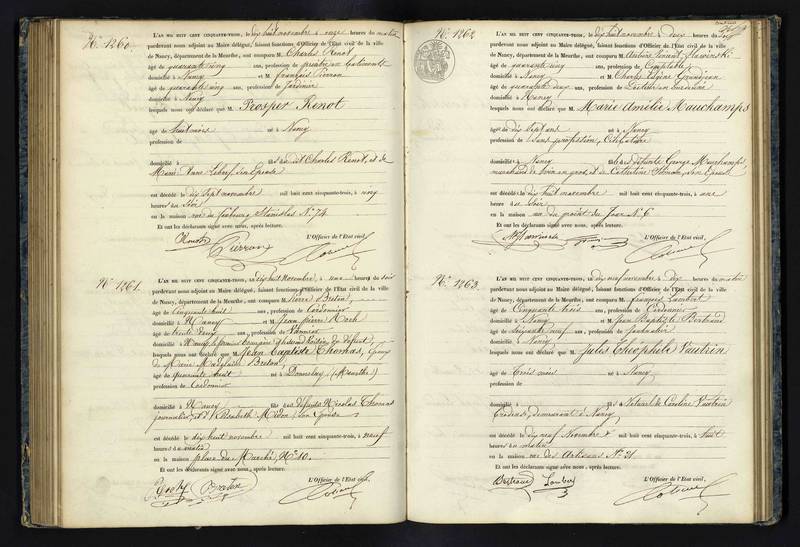 N° 1260.
L'AN MIL HUIT CENT CINQUANTE-TROIS, le dix huit novembre à onze heures du matin
pardevant nous adjoint au Maire délégué, faisant fonctions d'Officier de l'Etat civil de la ville
de Nancy, département de la Meurthe, ont comparu M. Charles Renot,
âgé de quarante cinq ans, profession de peintre en bâtiments
domicilié à Nancy et M. françois Pierron
âgé de quarante cinq ans, profession de Jardinier
domicilié à Nancy
lesquels nous ont déclaré que M. Prosper Renot
âgé de huit mois né à Nancy
profession de
domicilié à fils de dit Charles Renot, et de
Marie Anne son Epouse
est décédé le dix sept novembre mil huit cent cinquante-trois, à cinq
heures du Soir
en la maison rue du faubourg Stanislas N° 74.
Et ont les déclarants signé avec nous, après lecture.
L'Officier de l'Etat civil,
Renot Pierron
N° 1261.
L'AN MIL HUIT CENT CINQUANTE-TROIS, le dix huit Novembre, à une heure du soir
pardevant nous adjoint au Maire délégué, faisant fonctions d'Officier de l'Etat civil de la ville
de Nancy, département de la Meurthe, ont comparu M. Pierre Breton,
âgé de Cinquante huit ans, profession de Cordonnier
domicilié à Nancy et M. Jean pierre Roch
âgé de trente ans, profession de Vannier
domicilié à Nancy, le premier et second Voisin du défunt,
lesquels nous ont déclaré que M. Jean Baptiste Thomas, Epoux
de Marie Breton,
âgé de quarante huit né à Donnelay (Meurthe)
profession de Cordonnier
domicilié à Nancy fils de défunts Nicolas Thomas
journalier, et d'Elisabeth son Epouse
est décédé le dix huit novembre mil huit cent cinquante-trois, à neuf
heures du matin
en la maison place du Marché, N° 10.
Et ont les déclarants signé avec nous, après lecture.
L'Officier de l'Etat civil,
N° 1262
L'AN MIL HUIT CENT CINQUANTE-TROIS, le dix huit novembre à deux heures du soir
pardevant nous adjoint au Maire délégué, faisant fonctions d'Officier de l'Etat civil de la ville
de Nancy, département de la Meurthe, ont comparu M.
âgé de quarante cinq ans, profession de Comptable
domicilié à Nancy et M. Charles Eugène Grandjean
âgé de quarante deux ans, profession de Docteur en médecine
domicilié à Nancy
lesquels nous ont déclaré que M. Marie Amélie Mauchamps
âgé de dix sept ans né à Nancy
profession de Sans profession, Célibataire
domicilié à Nancy fille de défunts George Mauchamps
marchand de vin en gros, et de Catherine son Epouse
est décédé le dix huit novembre mil huit cent cinquante-trois, à une
heure du soir
en la maison rue du point du Jour N° 6
Et ont les déclarants signé avec nous, après lecture.
L'Officier de l'Etat civil,
N° 1263.
L'AN MIL HUIT CENT CINQUANTE-TROIS, le dix neuf novembre à dix heures du matin
pardevant nous adjoint au Maire délégué, faisant fonctions d'Officier de l'Etat civil de la ville
de Nancy, département de la Meurthe, ont comparu M. françois Lambert
âgé de Cinquante trois ans, profession de Cordonnier
domicilié à Nancy et M. Jean Baptiste Bertrand
âgé de Soixante neuf ans, profession de journalier
domicilié à Nancy
lesquels nous ont déclaré que M. Jules Théophile Vautrin
âgé de trois mois né à Nancy
profession de
domicilié à fils Naturel de Caroline Vautrin
Brodeuse, demeurant à Nancy
est décédé le dix neuf Novembre mil huit cent cinquante-trois, à huit
heures du matin
en la maison rue des Artisans N° 21
Et ont les déclarants signé avec nous, après lecture.
L'Officier de l'Etat civil,
Bertrand Lambert